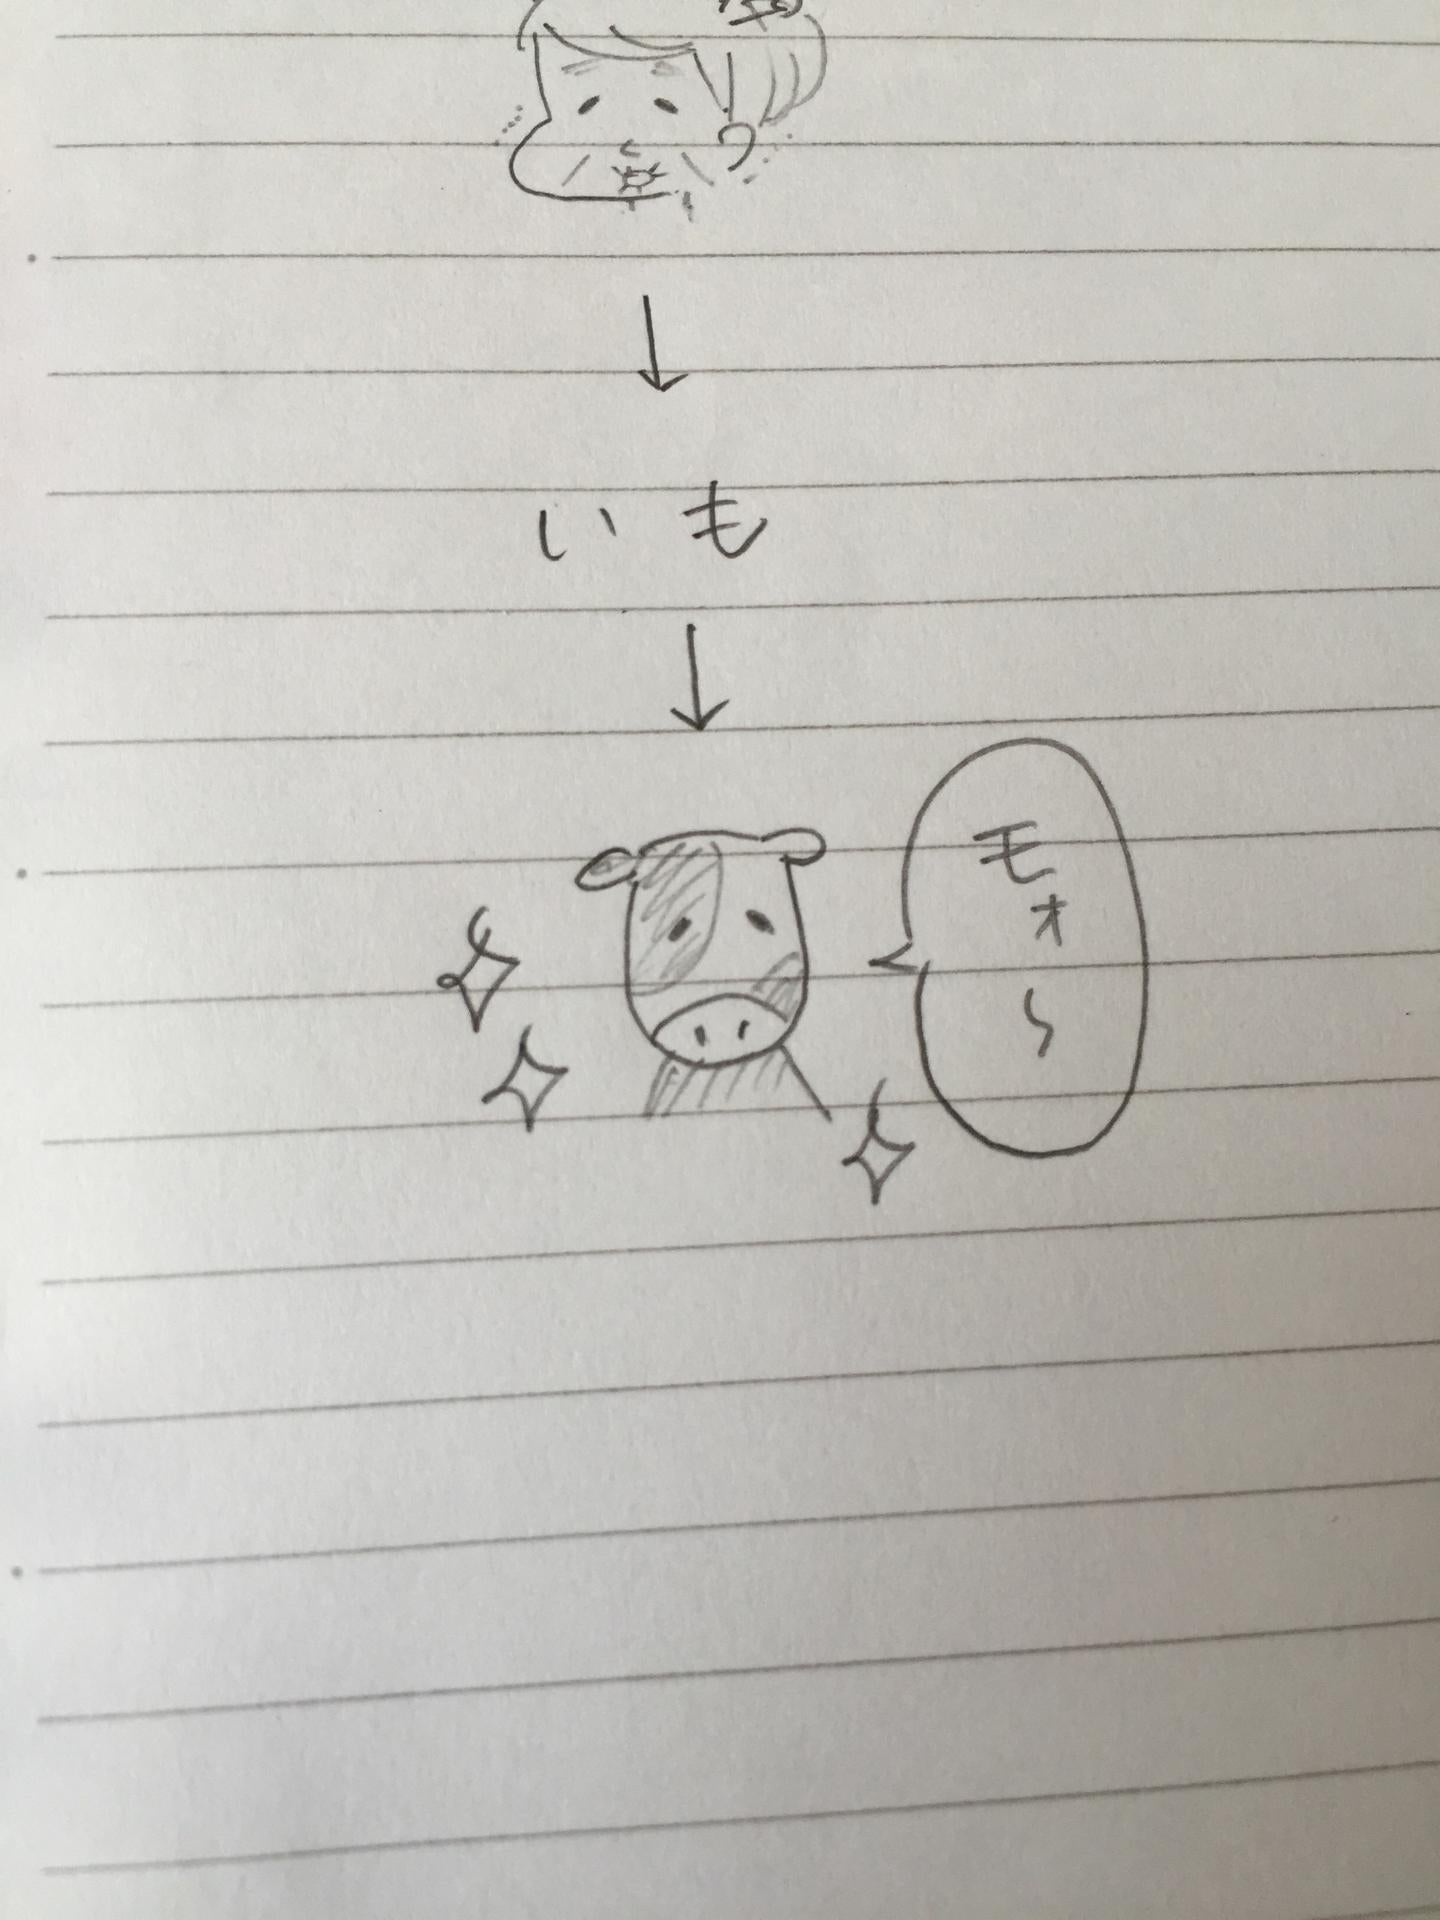 いも
モォ〜